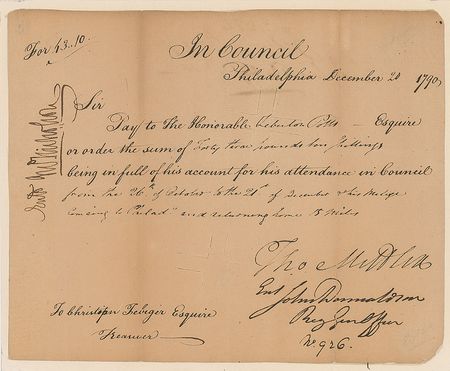 For 43..10..
In Council
Philadelphia December 20 1790
Sir
Pay to The Honorable Zebulon Potts — Esquire
or order the sum of Forty three pounds ten shillings
being in full of his account for his attendance in Council
from the 26th of October to the 20th of December & his Mileage
coming to Philada and returning home 18 Miles
Tho Mifflin
Entd John Donnaldson
Reg Genl Offce
No 926.
To Christopr Febiger Esquire
Treasurer
Entd Jno Nicholson